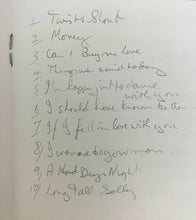 1 Twist & Shout
2 Money
3 Can't Buy me Love
4 Things we said today
5 I'm happy just to dance
with you
6 I should have known better
7 If I fell in love with you
8 I wanna be your man
9 A Hard Days Night
10 Long Tall Sally